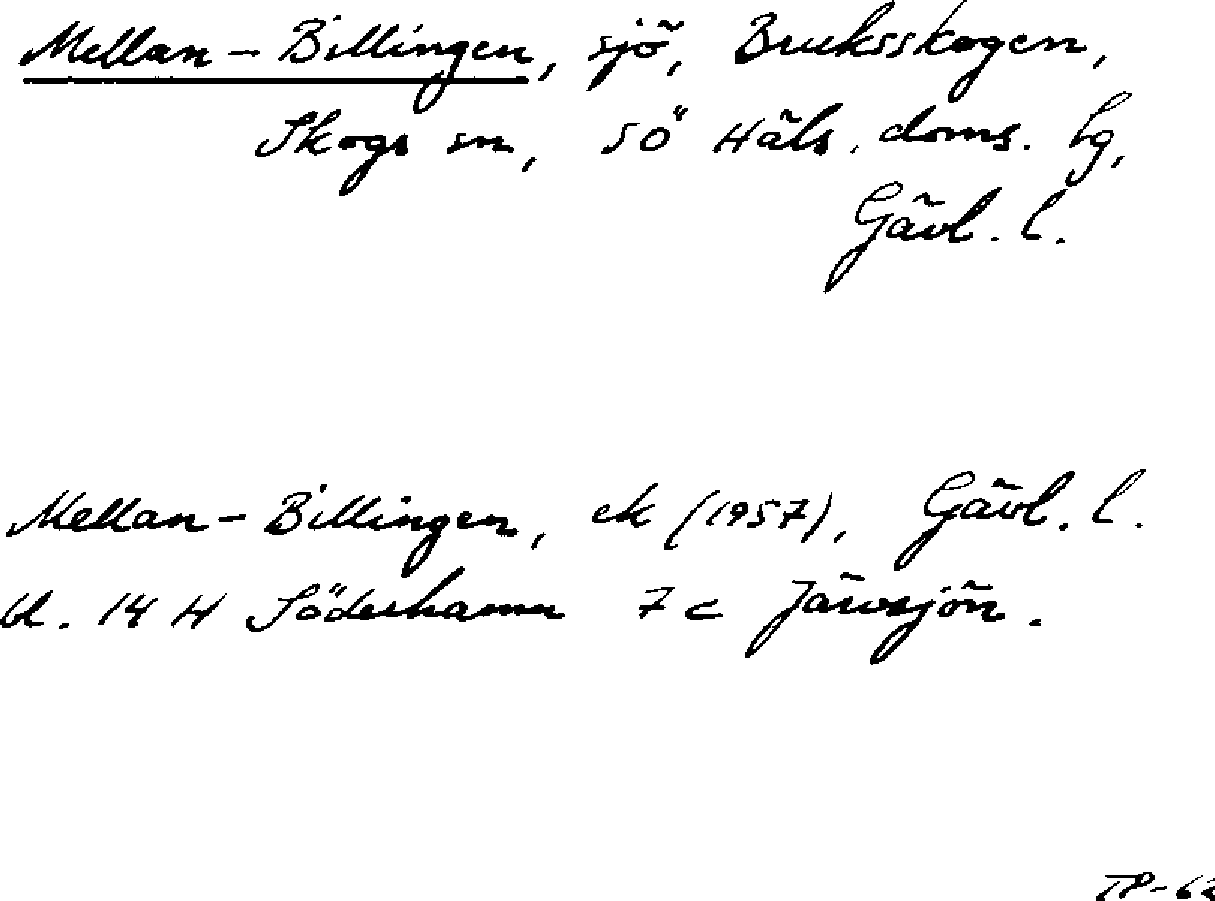 Mellan-Billingen, sjö, Bruksskogen,
Skogs sn, SÖ Häls. doms. hg,
Gävl. l.
Mellan-Billingen, ek (1957), Gävl. l.
bl. 14 H Söderhamn 7 c Järvsjön.
TP-62